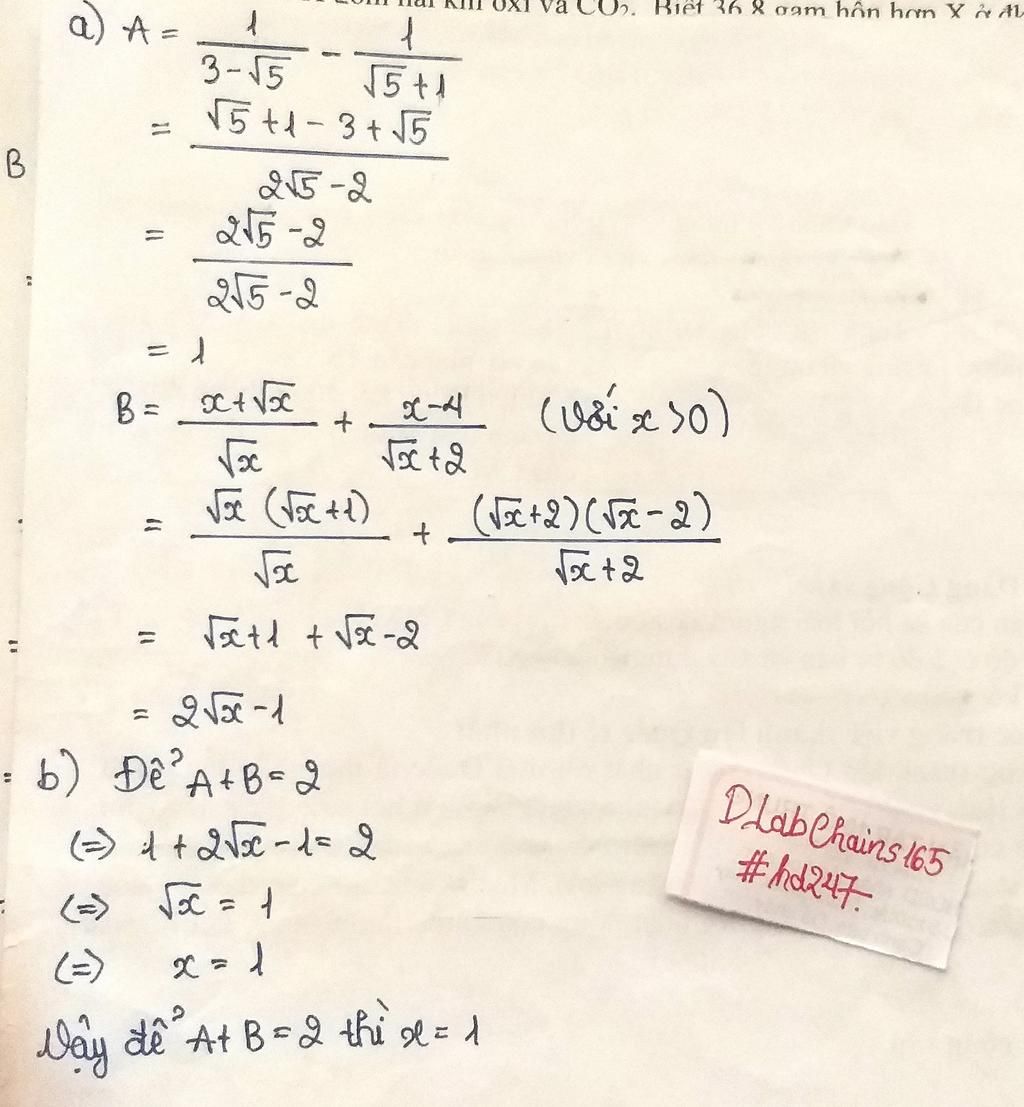 hai khí oxi và CO₂. Biết 36,8 gam hỗn hợp X ở
a) A = 1/(3-√5) - 1/(√5+1)
= (√5+1-3+√5)/(2√5-2)
B
= (2√5-2)/(2√5-2)
= 1
B = (x+√x)/√x + (x-4)/(√x+2) (với x >0)
= √x (√x+1)/√x + (√x+2)(√x-2)/(√x+2)
= √x+1 + √x-2
= 2√x-1
b) Để A+B=2
(=) 1+2√x-1=2
(=) √x = 1
(=) x = 1
Vậy để A+B=2 thì x=1
DLabChains165
#hd247.